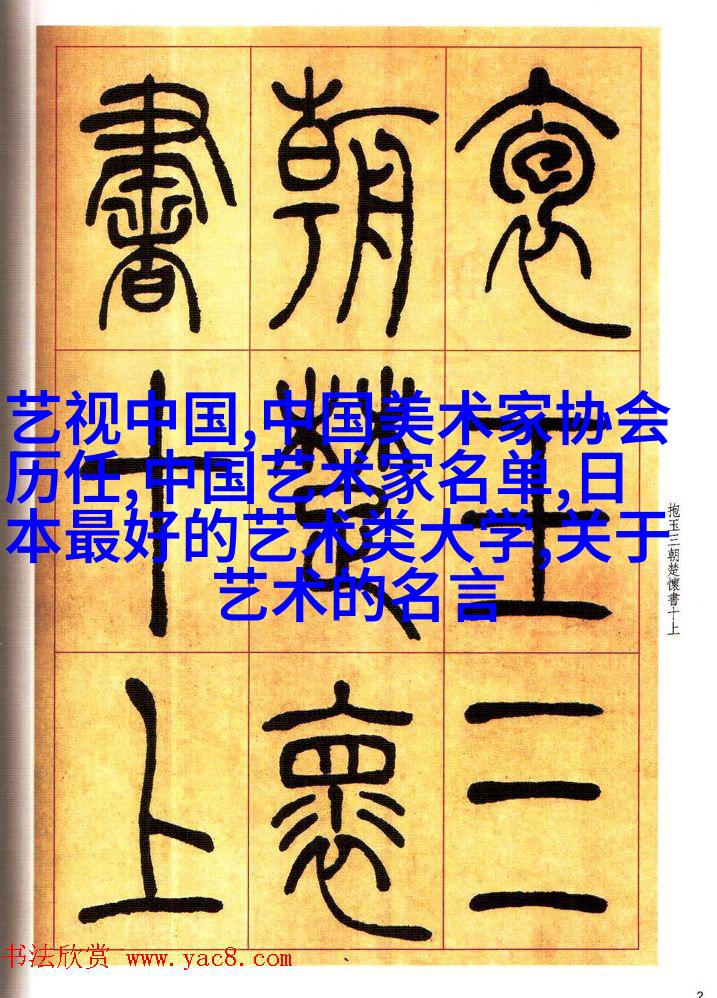 抱玉三
朝楚懷
書十上
艺视中国,中国美术家协会
历任,中国艺术家名单,日
本最好的艺术类大学,关于
艺术的名言
抱玉三朝楚懷書十上
书法欣赏 www.yac8.com
2